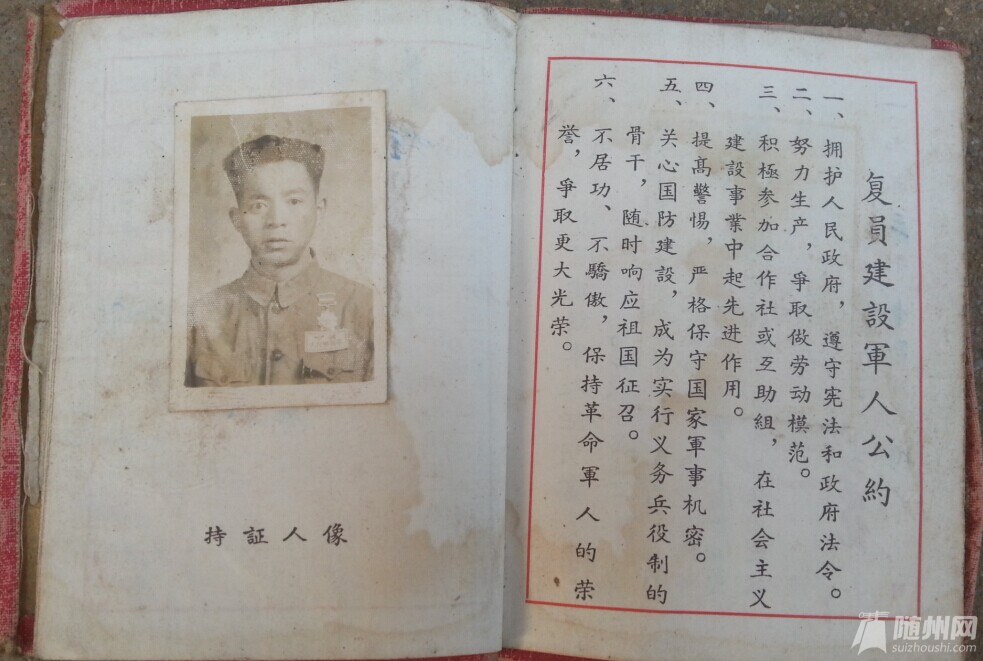 持証人像
复員建設軍人公約
一、拥护人民政府，遵守宪法和政府法令。
二、努力生产，爭取做劳动模范。
三、积極参加合作社或互助組，在社会主义
建設事業中起先进作用。
四、提高警惕，严格保守国家軍事机密。
五、关心国防建設，成为实行义务兵役制的
骨干，随时响应祖国征召。
六、不居功、不驕傲，保持革命軍人的荣
誉，爭取更大光荣。
随州网
suizhoushi.com